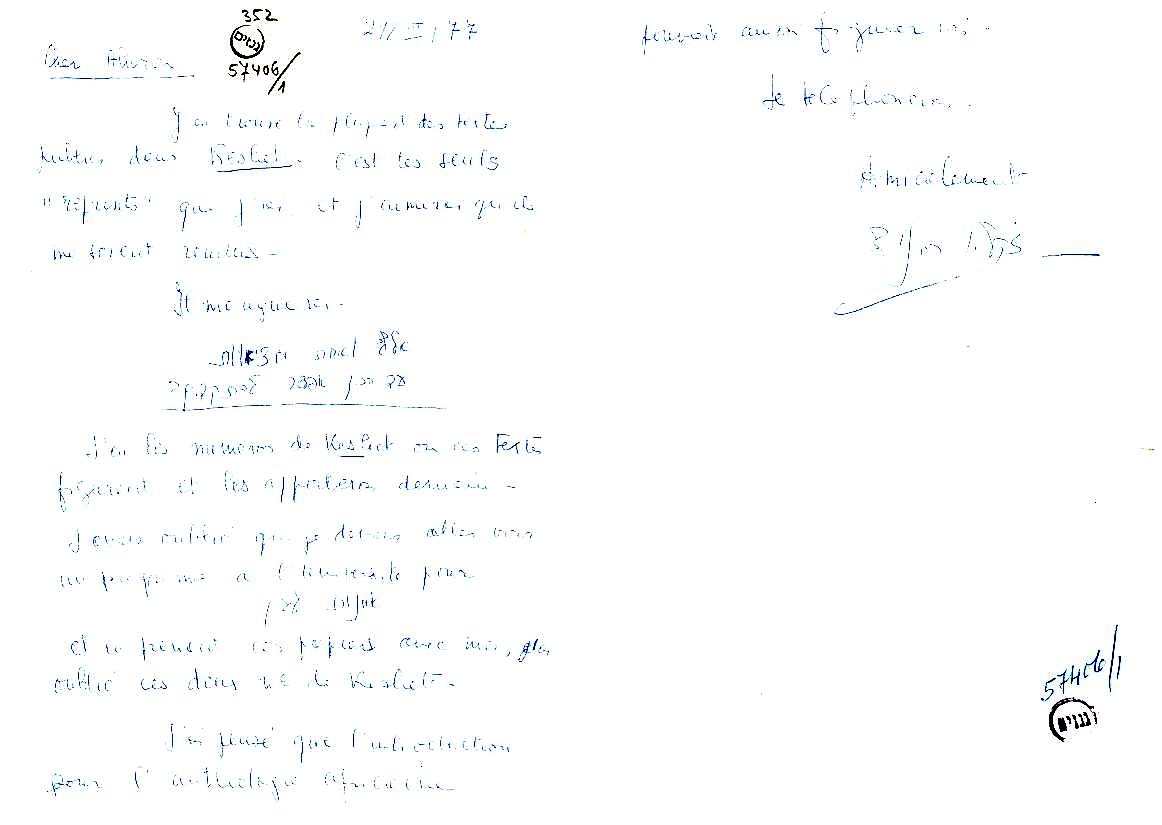 352
גנזים
57406/1
2/ II / 77
Cher
J'ai trouvé la plupart des textes
publiés dans Keshet. C'est les seuls
"reprints" que j'ai et j'aimerai qu'ils
me soient rendus -
Il manque ici -
J'ai les numéros de Keshet ou ces textes
figurent et les apporterai demain -
J'avais oublié que je devais aller voir
un programme a l'Université pour
et en prenant ces papiers avec moi, j'ai
oublié ces deux Nº de Keshet -
J'ai pensé que l'introduction
pour l'anthologie africaine
pouvait aussi figurer ici.
Je telephonerai.
Amicalement
57406/1
גנזים